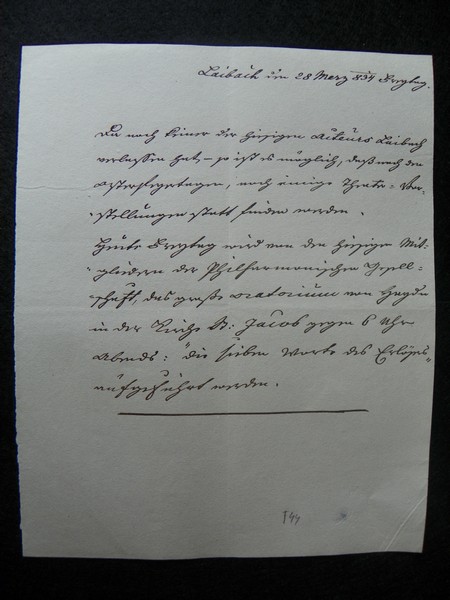 Laibach den 28 Merz 834 Freytag.
Da noch keiner der hiesigen Acteurs Laibach
verlassen hat – so ist es möglich, daß nach den
Osterfeyertagen, noch einige Theater-Vor-
stellungen statt finden werden.
Heute Freytag wird von den hiesigen Mit-
gliedern der Philharmonischen Gesell-
schaft, das große Oratorium von Haydn
in der Kirche St: Jacob gegen 6 Uhr
Abends: "die sieben Worte des Erlösers"
aufgeführt werden.